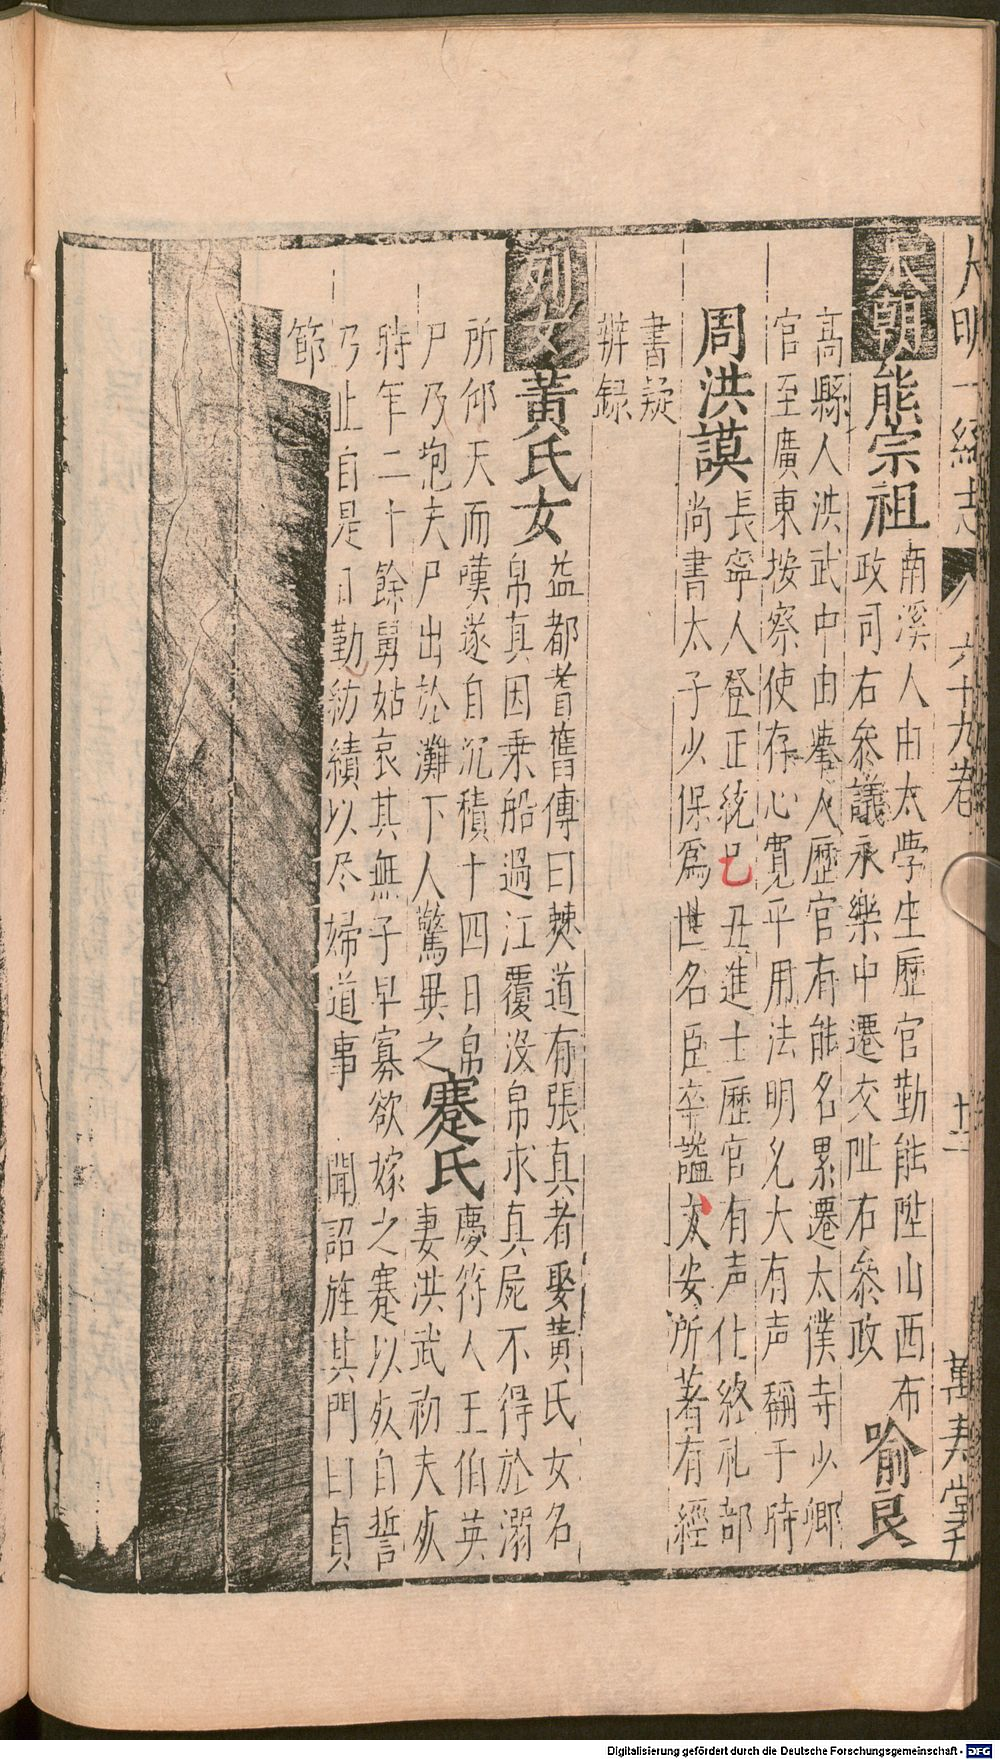 大明一統志 六十九卷 十二 萬壽堂
本朝 熊宗祖 南溪人由太學生歷官勤能陞山西布
政司右叅議永樂中遷交阯右叅政 喻良
高縣人洪武中由舉人歷官有能名累遷太僕寺少卿
官至廣東按察使存心寛平用法明允大有声稱于時
周洪謨 長寧人登正統己丑進士歷官有声仕終礼部
尚書太子少保爲世名臣卒謚文安所著有經
書疑
辨録
列女 黃氏女 益都耆舊傳曰僰道有張真者娶黃氏女名
帛真因乗船過江覆没帛求真屍不得於溺
所仰天而嘆遂自沉積十四日帛
尸乃抱夫尸出於灘下人驚異之 蹇氏 慶符人王伯英
妻洪武初夫死
時年二十餘舅姑哀其無子早寡欲嫁之蹇以死自誓
乃止自是日勤紡績以尽婦道事 聞詔旌其門曰貞
節
Digitalisierung gefördert durch die Deutsche Forschungsgemeinschaft - DFG